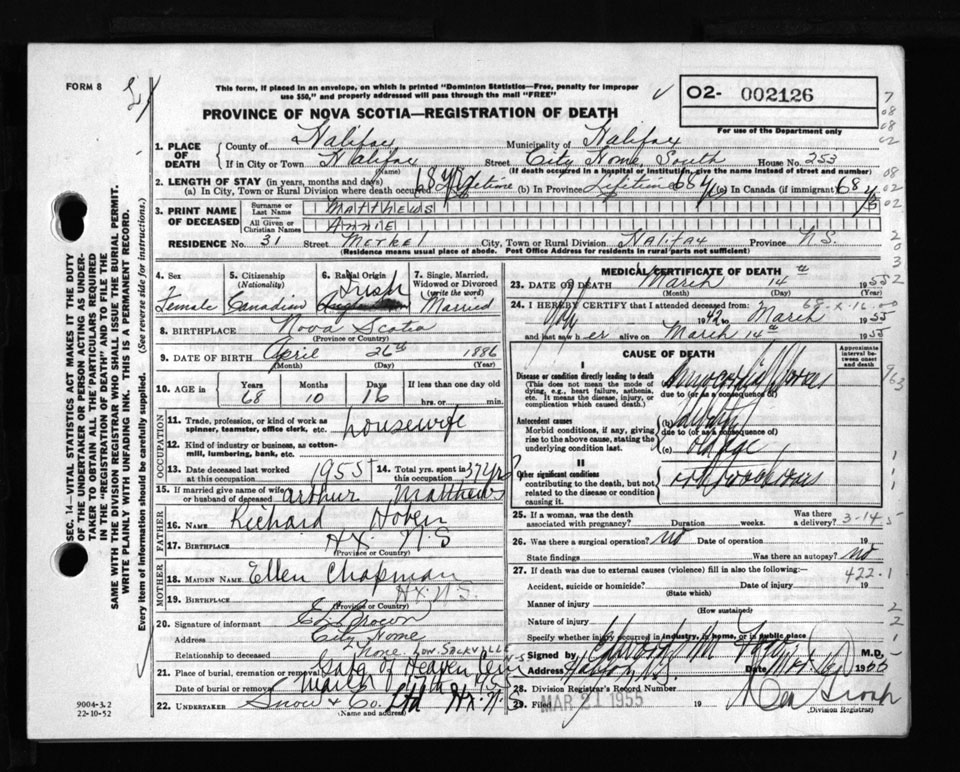 FORM 8
This form, if placed in an envelope, on which is printed "Dominion Statistics—Free, penalty for improper
use $50," and properly addressed will pass through the mail "FREE"
PROVINCE OF NOVA SCOTIA—REGISTRATION OF DEATH
02- 002126
For use of the Department only
1. PLACE OF DEATH
County of Halifax Municipality of Halifax
If in City or Town Halifax Street City Home, South House No. 253
(Name) (If death occurred in a hospital or institution, give the name instead of street and number)
2. LENGTH OF STAY (in years, months and days)
(a) In City, Town or Rural Division where death occurred 68 yrs Lifetime (b) In Province Lifetime 68 y (c) In Canada (if immigrant) 68 y
3. PRINT NAME OF DECEASED
Surname or Last Name MATTHEWS
All Given or Christian Names ANNIE
RESIDENCE No. 31 Street Merkel City, Town or Rural Division Halifax Province N.S.
(Residence means usual place of abode. Post Office Address for residents in rural parts not sufficient)
4. Sex
Female
5. Citizenship (Nationality)
Canadian
6. Racial Origin
Irish
7. Single, Married, Widowed or Divorced (write the word)
Married
8. BIRTHPLACE Nova Scotia
(Province or Country)
9. DATE OF BIRTH April 26th 1886
(Month) (Day) (Year)
10. AGE in Years 68 Months 10 Days 16 If less than one day old
hrs. or min.
OCCUPATION
11. Trade, profession, or kind of work as spinner, teamster, office clerk, etc. housewife
12. Kind of industry or business, as cotton-mill, lumbering, bank, etc.
13. Date deceased last worked at this occupation 1955
14. Total yrs. spent in this occupation 37 yrs
15. If married give name of wife or husband of deceased Arthur Matthews
FATHER
16. NAME Richard Hoben
17. BIRTHPLACE HX. N.S
(Province or Country)
MOTHER
18. MAIDEN NAME Ellen Chapman
19. BIRTHPLACE HX. N.S.
(Province or Country)
20. Signature of informant E. Brown
Address City Home
Relationship to deceased None.
LOW. SACKVILLE N-S
21. Place of burial, cremation or removal Gate of Heaven Cem
Date of burial or removal March 17th 1955
22. UNDERTAKER Snow & Co. Ltd Hx. N.S
(Name and Address)
MEDICAL CERTIFICATE OF DEATH
23. DATE OF DEATH March 14th 1955
(Month) (Day) (Year)
24. I HEREBY CERTIFY that I attended deceased from
1942 to March 1955
and last saw her alive on March 14th 1955
CAUSE OF DEATH
Approximate interval between onset and death
I
Disease or condition directly leading to death
(This does not mean the mode of dying, e.g., heart failure, asthenia, etc. It means the disease, injury, or complication which caused death.)
(a)
due to (or as a consequence of)
Antecedent causes
Morbid conditions, if any, giving rise to the above cause, stating the underlying condition last.
(b)
due to (or as a consequence of)
(c) old age
II
Other significant conditions
contributing to the death, but not related to the disease or condition causing it.
25. If a woman, was the death associated with pregnancy? Duration weeks. Was there a delivery?
3-14-5
26. Was there a surgical operation? no Date of operation 19
State findings Was there an autopsy? no
27. If death was due to external causes (violence) fill in also the following:—
422.1
Accident, suicide or homicide? Date of injury 19
(State which)
Manner of injury
(How sustained)
Nature of injury
Specify whether injury occurred in industry, in home, or in public place
Signed by M.D.
Address Halifax N.S. Date Mar 16 1955
28. Division Registrar's Record Number
29. Filed MAR 21 1955 19
(Division Registrar)
SEC. 14—VITAL STATISTICS ACT MAKES IT THE DUTY
OF THE UNDERTAKER OR PERSON ACTING AS UNDER-
TAKER TO OBTAIN ALL THE PARTICULARS REQUIRED
IN THE "REGISTRATION OF DEATH" AND TO FILE THE
SAME WITH THE DIVISION REGISTRAR WHO SHALL ISSUE THE BURIAL PERMIT.
WRITE PLAINLY WITH UNFADING INK. THIS IS A PERMANENT RECORD.
Every item of information should be carefully supplied. (See reverse side for instructions.)
9004-3.2
22-10-52